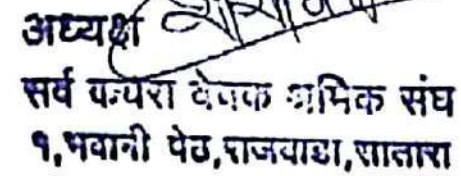 अध्यक्ष
सर्व कचरा वेचक श्रमिक संघ
१,भवानी पेठ,राजवाडा,सातारा